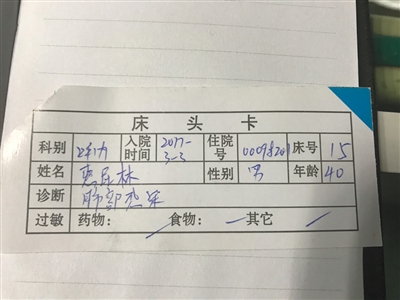 床头卡
科别 入院时间 2017-3-3 住院号 床号 15
姓名 林 性别 男 年龄 40
诊断 肺部感染
过敏 药物: 食物: 其它